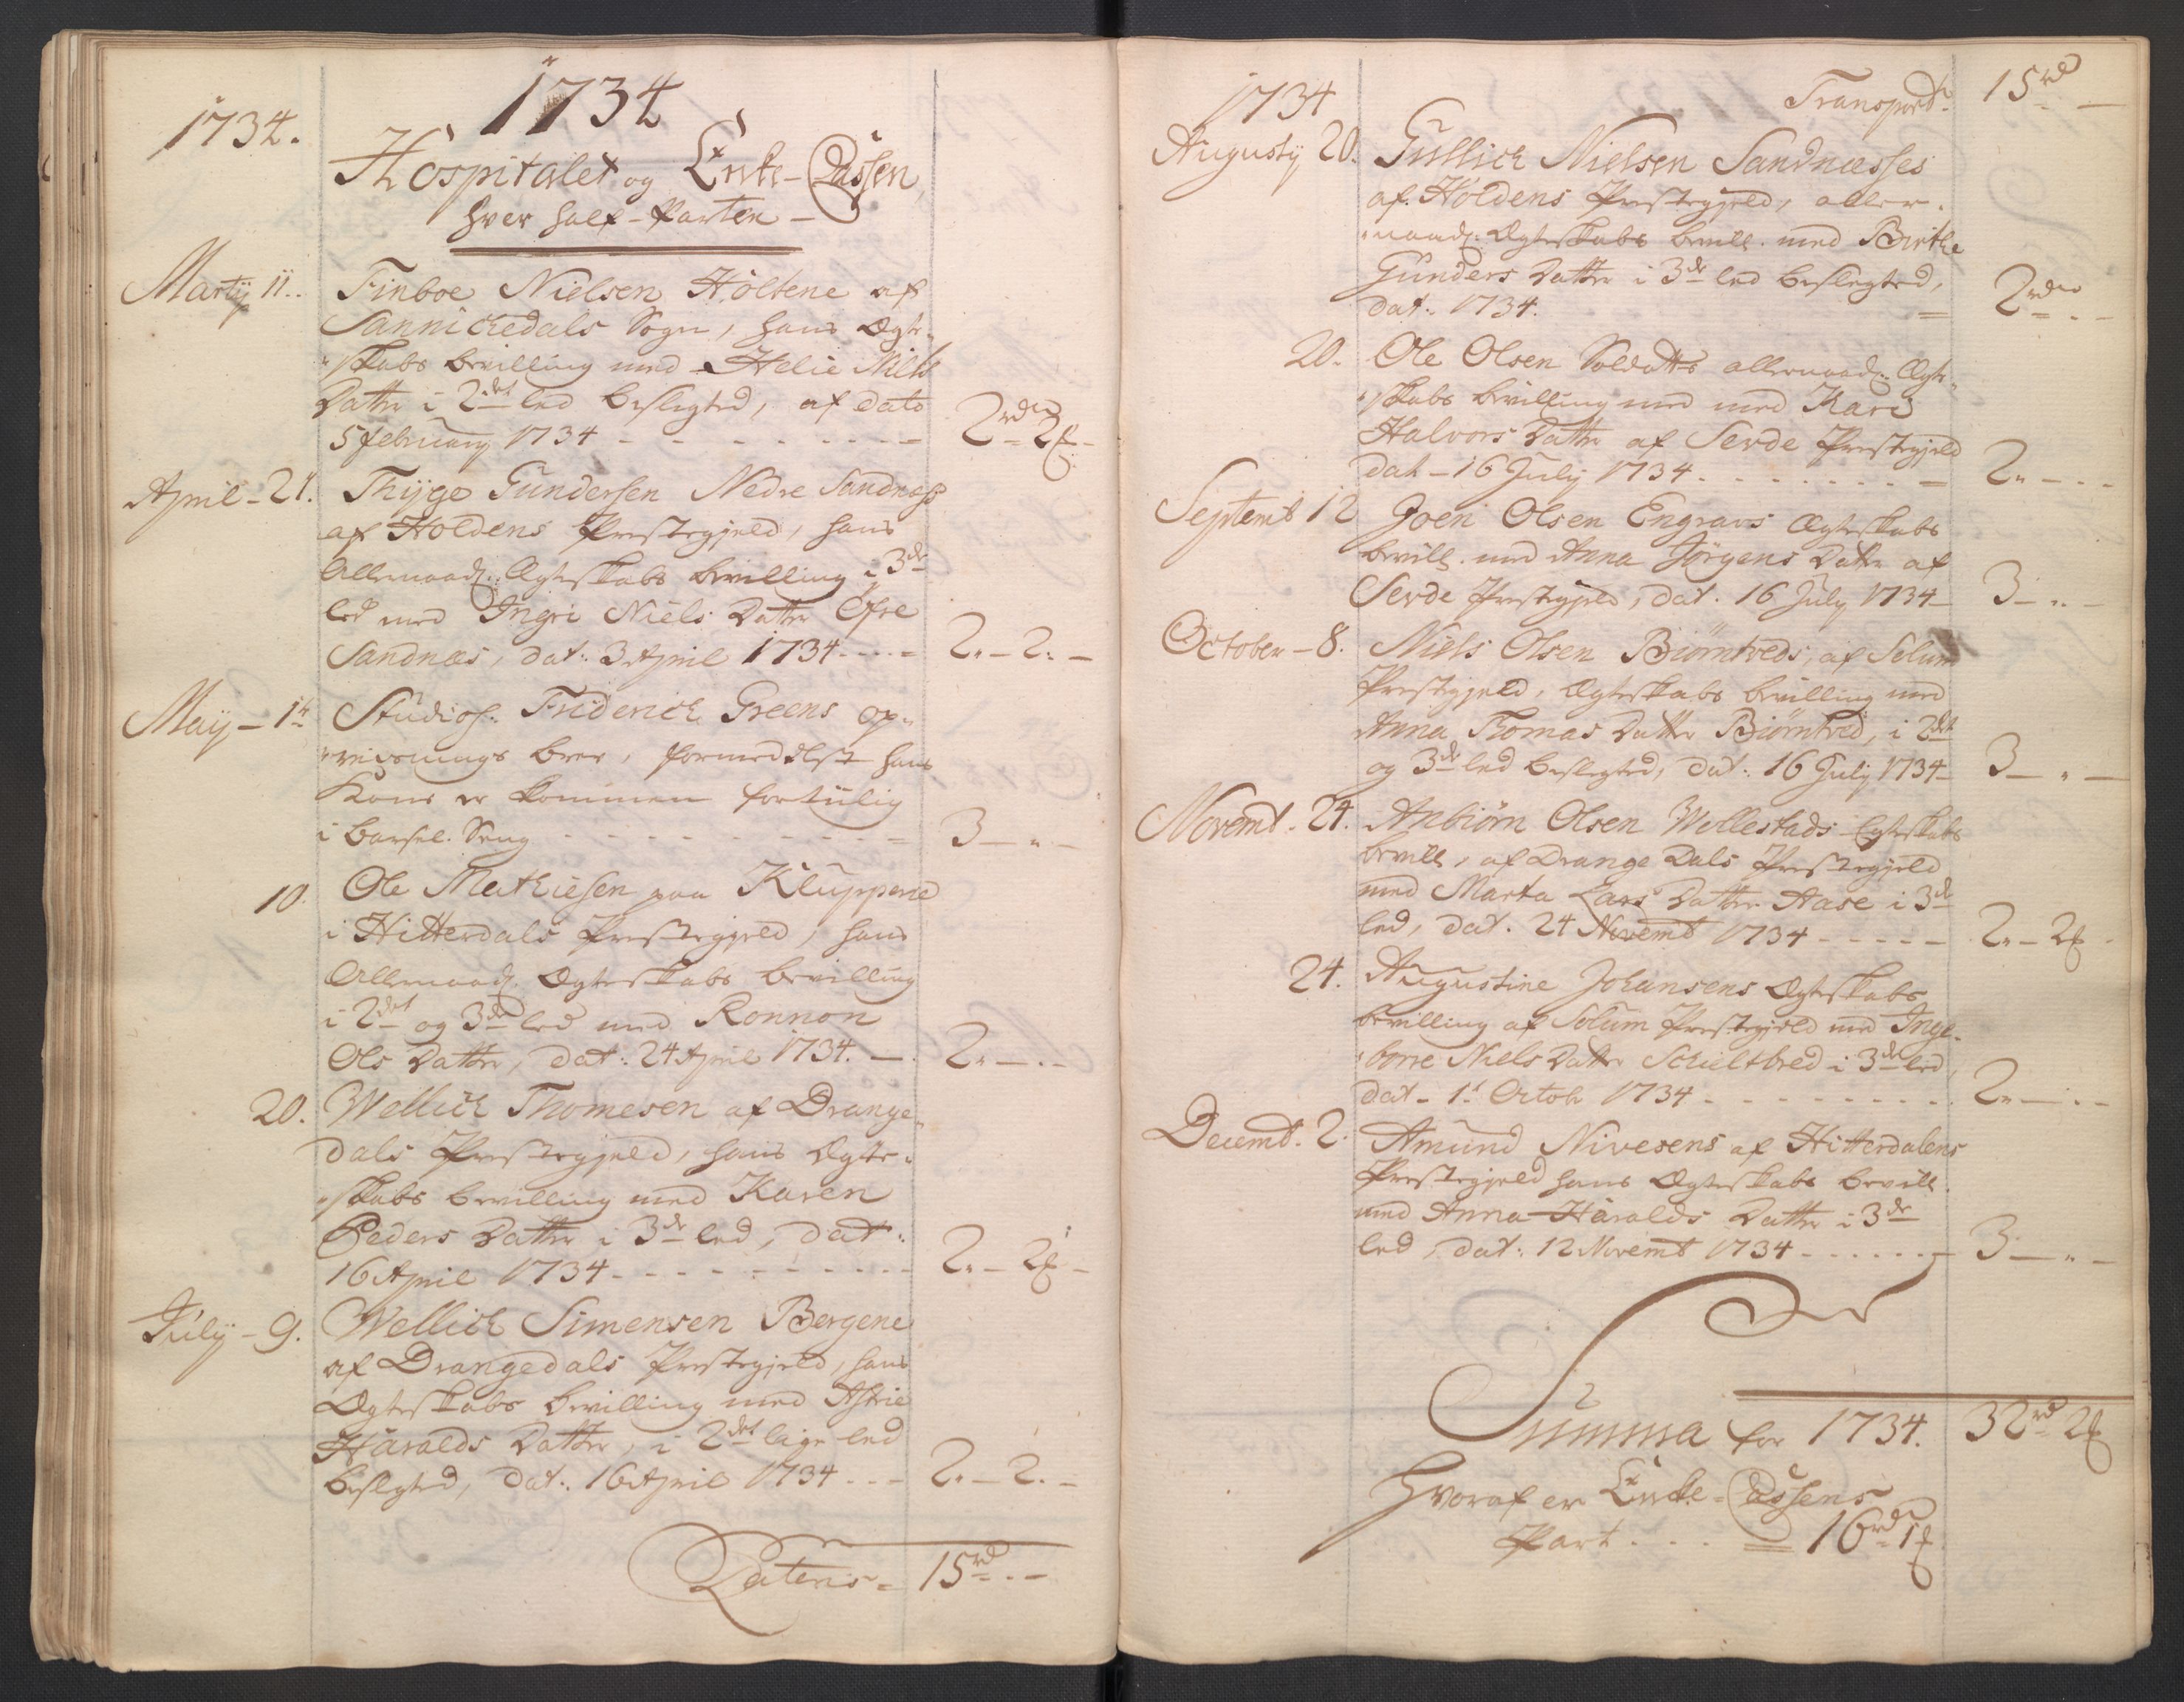 1734.
1734
Hospitalet og Encke-Cassen,
hver half-Parten -
Martij 11. Finboe Nielsen Holtene af
Sannickedals Sogn, hans Ægte-
skabs bevilling med Helie Niels
Datter i 2det led beslegted, af dato
5 february 1734 - 2rdr 2ß -
April - 21. Thijge Gundersen Nedre Sandness
af Holdens Prestegjeld, hans
Allernaad: Ægteskabs bevilling i 3de
led med Ingri Niels Datter Øfre
Sandnæs, dat: 3 April 1734 - 2. - 2. -
Maij - 1t Studios: Friderich Greens op-
reisnings brev, formedelst hans
Kone er kommen fortiilig
i barsel. Seng - 3 - " -
10. Ole Mathiesen paa Kluppene
i Hitterdals Prestegjeld, hans
Allernaad: Ægteskabs bevilling
i 2det og 3de led med Ronnon
Ols Datter, dat: 24 April 1734. - 2. - . -
20. Wellich Thomesen af Drange-
dals Prestegjeld, hans Ægte-
skabs bevilling med Karen
Peders Datter i 3de led, dat:
16 April 1734 - 2. - 2ß -
Julij - 9. Wellich Simensen Bergene
af Drangedals Prestegjeld, hans
Ægteskabs bevilling med Astrie
Haralds Datter, i 2det lige led
beslegted, dat: 16 April 1734 - 2. - 2. -
Lateris = 15rd . -
1734
Transport 15rd -
Augustij 20. Gullich Nielsen Sandnæsses
af Holdens Prestegjeld, aller-
naad: Ægteskabs bevill. med Birthe
Gunders Datter i 3de led beslegted,
dat: 1734. = 2rdr . -
20. Ole Olsen Soldatts allernaad: Ægte-
skabs bevilling med med Kari
Halvors Datter af Serde Prestegjeld
dat - 16 July 1734 - 2. - . -
Septemb 12 Joen Olsen Engravs Ægteskabs
bevill. med Anna Jörgens Datter af
Serde Prestegjeld, dat. 16 July 1734 - 3 - " -
October - 8. Niels Olsen Biørntveds, af Solum
Prestegjeld, Ægteskabs bevilling med
Anna Thomas Datter Biørntved, i 2det
og 3de led beslegted, dat: 16 July 1734 - 3 - " -
Novemb. 24. Anbiørn Olsen Wellestads Egteskabs
bevill, af Drange Dals Prestegjeld
med Marta Lars Datter Aase i 3de
led, dat. 24 Novemb 1734 - 2. - 2ß -
24. Augustine Johansens Ægteskabs
bevilling af Solum Prestegjeld med Inge-
borre Niels Datter Schiltbred i 3de led,
dat - 1t Octobr 1734 - 2. - . -
Decemb. 2. Amund Nivesens af Hitterdalens
Prestegjeld hans Ægteskabs bevill.
med Anna Haralds Datter i 3de
led, dat: 12 Novemb 1734 - 3 - " -
Summa for 1734. 32rd 2ß
Hvoraf er Encke-Cassens
Part . . . = 16rdr 1ß